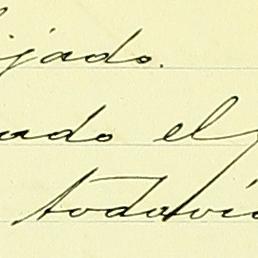 ijado.
uado el
todavía